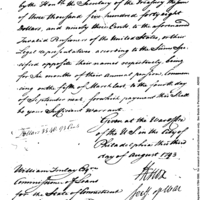 by the Hon'ble the Secretary of the Treasury the Sum
of three thousand five hundred forty eight
Dollars, and ninety three Cents to the aforesaid
Invalid Pensioners of the United States, or their
legal representatives according to the Sums for-
opposite their names respectively, being
for Six months of their Annual pension, commenc
ing on the fifth of March last, to the fourth day
of September next, for which payment this shall
be your sufficient Warrant.
Given at the War office
of the U.S. in the City of
Philadelphia this third
day of August 1793.
Dollars 3548.93 Cents
William Imlay Esqr
Commissioner of Loans
for the State of Connecticut
HKnox
Secy of War